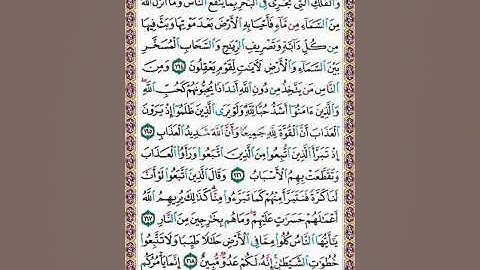 وَالْفُلْكِ الَّتِي تَجْرِي فِي الْبَحْرِ بِمَا يَنفَعُ النَّاسَ وَمَا أَنزَلَ اللَّهُ
مِنَ السَّمَاءِ مِن مَّاءٍ فَأَحْيَا بِهِ الْأَرْضَ بَعْدَ مَوْتِهَا وَبَثَّ فِيهَا
مِن كُلِّ دَابَّةٍ وَتَصْرِيفِ الرِّيَاحِ وَالسَّحَابِ الْمُسَخَّرِ
بَيْنَ السَّمَاءِ وَالْأَرْضِ لَآيَاتٍ لِّقَوْمٍ يَعْقِلُونَ ١٦٤ وَمِنَ
النَّاسِ مَن يَتَّخِذُ مِن دُونِ اللَّهِ أَندَادًا يُحِبُّونَهُمْ كَحُبِّ اللَّهِ
وَالَّذِينَ ءَامَنُوا أَشَدُّ حُبًّا لِّلَّهِ وَلَوْ يَرَى الَّذِينَ ظَلَمُوا إِذْ يَرَوْنَ
الْعَذَابَ أَنَّ الْقُوَّةَ لِلَّهِ جَمِيعًا وَأَنَّ اللَّهَ شَدِيدُ الْعَذَابِ ١٦٥
إِذْ تَبَرَّأَ الَّذِينَ اتُّبِعُوا مِنَ الَّذِينَ اتَّبَعُوا وَرَأَوُا الْعَذَابَ
وَتَقَطَّعَتْ بِهِمُ الْأَسْبَابُ ١٦٦ وَقَالَ الَّذِينَ اتَّبَعُوا لَوْ أَنَّ
لَنَا كَرَّةً فَنَتَبَرَّأَ مِنْهُمْ كَمَا تَبَرَّءُوا مِنَّا كَذَٰلِكَ يُرِيهِمُ اللَّهُ
أَعْمَالَهُمْ حَسَرَاتٍ عَلَيْهِمْ وَمَا هُم بِخَارِجِينَ مِنَ النَّارِ ١٦٧
يَا أَيُّهَا النَّاسُ كُلُوا مِمَّا فِي الْأَرْضِ حَلَالًا طَيِّبًا وَلَا تَتَّبِعُوا
خُطُوَاتِ الشَّيْطَانِ إِنَّهُ لَكُمْ عَدُوٌّ مُّبِينٌ ١٦٨ إِنَّمَا يَأْمُرُكُم